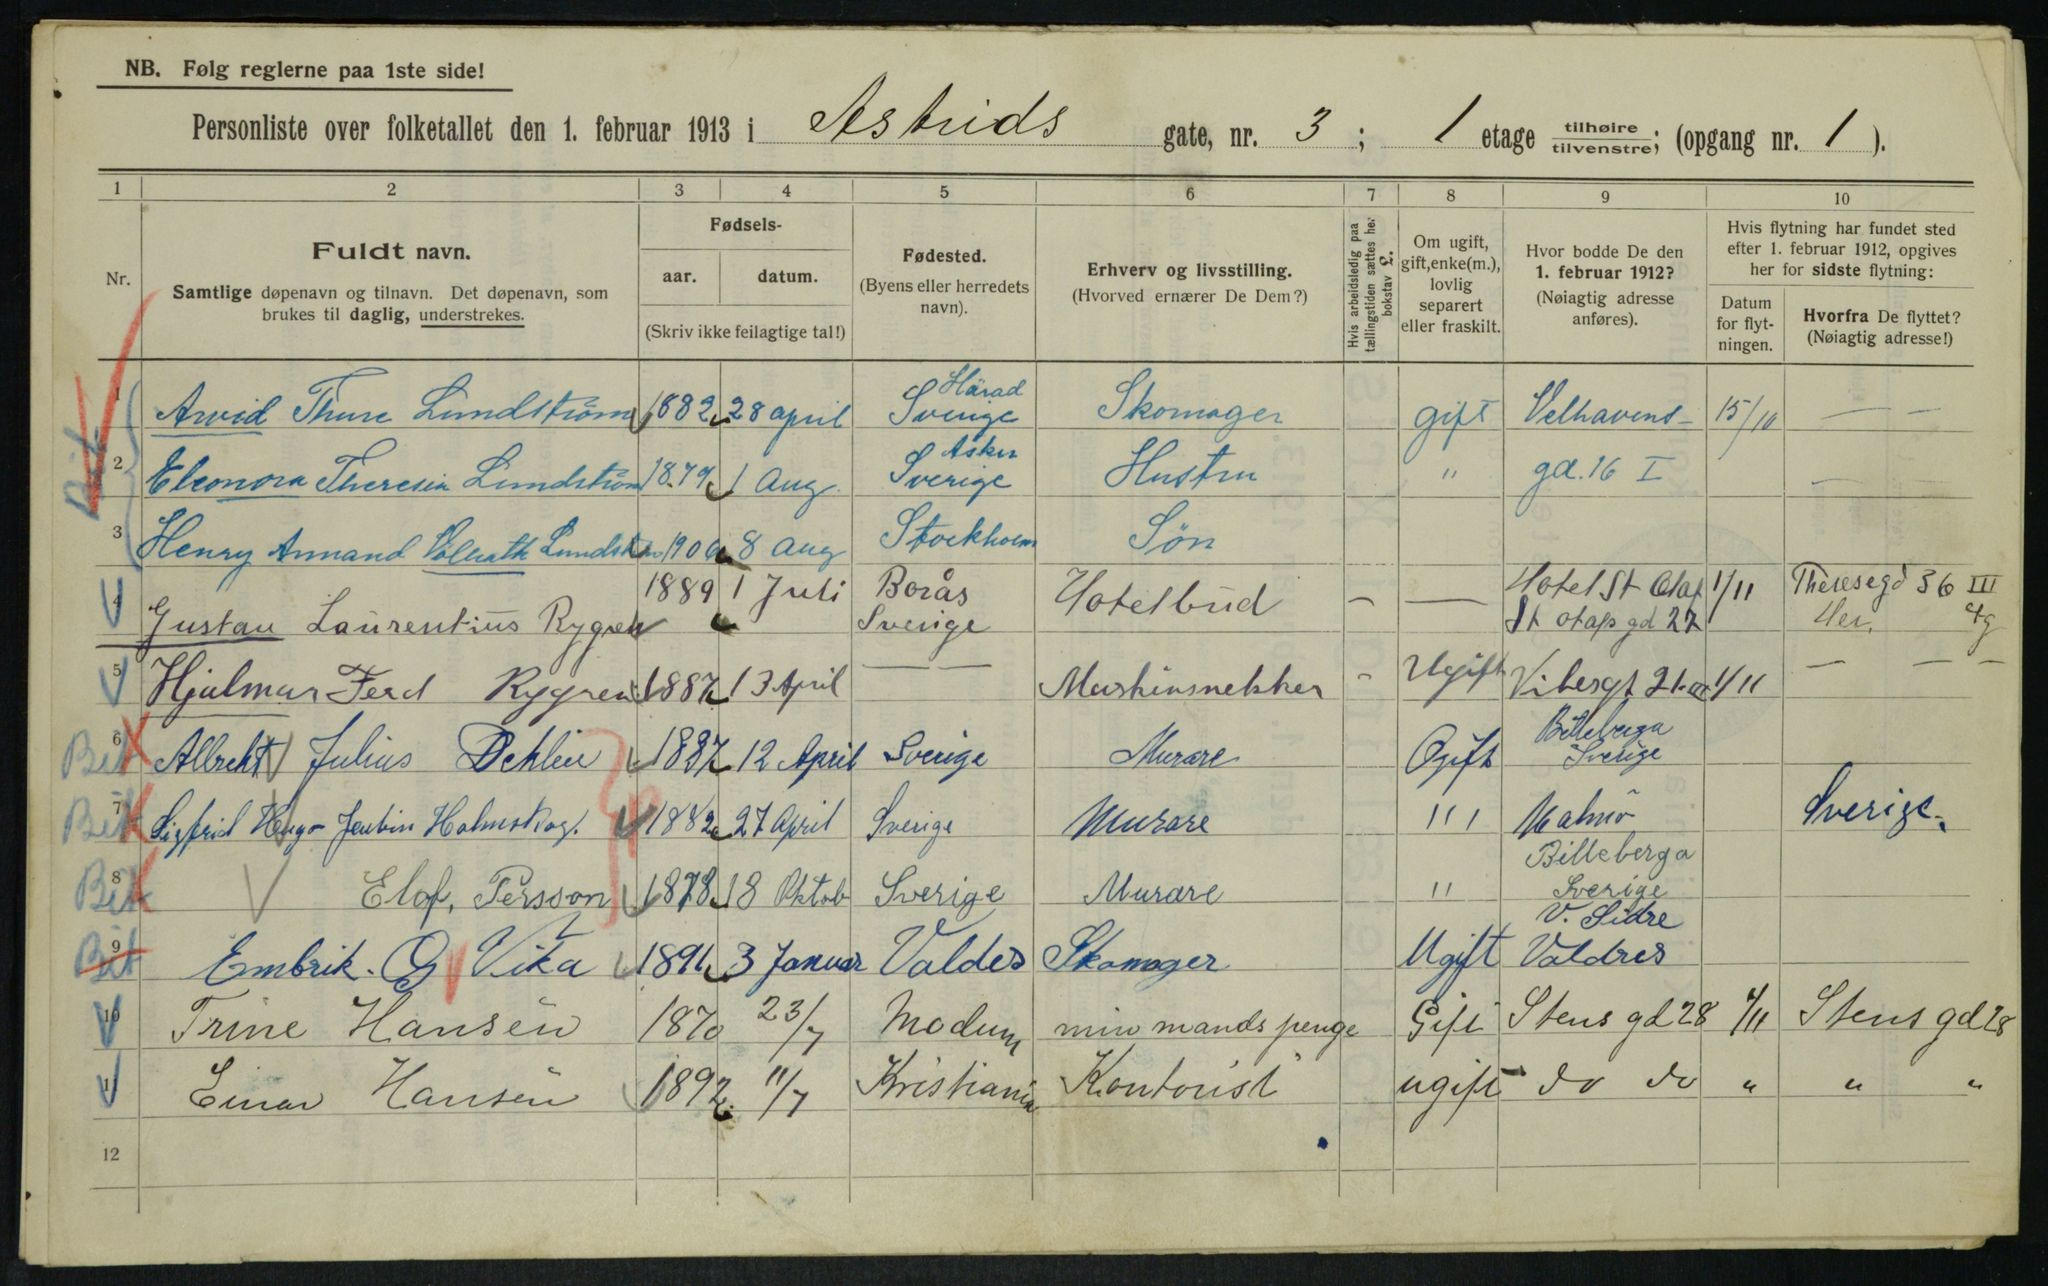 NB. Følg reglerne paa 1ste side!
Personliste over folketallet den 1. februar 1913 i Astrids gate, nr. 3 ; 1 etage tilhøire tilvenstre; (opgang nr. 1 ).
1 2 3 4 5 6 7 8 9 10
Nr.
Fuldt navn.
Samtlige døpenavn og tilnavn. Det døpenavn, som
brukes til daglig, understrekes.
Fødsels-
aar. datum.
(Skriv ikke feilagtige tal!)
Fødested.
(Byens eller herredets
navn).
Erhverv og livsstilling.
(Hvorved ernærer De Dem?)
Hvis arbeidsledig paa
tællingstiden sættes her
bokstav L.
Om ugift,
gift, enke(m.),
lovlig
separert
eller fraskilt.
Hvor bodde De den
1. februar 1912?
(Nøiagtig adresse
anføres).
Hvis flytning har fundet sted
efter 1. februar 1912, opgives
her for sidste flytning:
Datum
for flyt-
ningen.
Hvorfra De flyttet?
(Nøiagtig adresse!)
Härad
1 Arvid Thure Lundström 1882 28 april Sverige Skomager gift Velhavens- 15/10 — —
Asker
2 Eleonora Theresia Lundström 1879 1 Aug. Sverige Hustru " gd. 16 I — —
3 Henry Armand Lundström 1906 8 Aug Stockholm Søn
4 Gustav Laurentius Rygren 1889 1 Juli Borås Hotelbud — — Hotel St Olaf 1/11 Theresegd 36 III
Sverige St Olafs gd 27
5 Hjalmar Ferd Rygren 1887 13 April — — - Ugift Vibesgt 21 III 1/11 — — —
Billeberga
Bit 6 Albrekt Julius Dehlin 1887 12 April Sverige Murare Ogift Sverige
Bit 7 Sigfrid Hugo Holmskog. 1882 27 April Sverige Murare " Malmö Sverige.
Billeberga
Bit 8 Elof, Persson 1878 18 Oktob Sverige Murare " Sverige
V. Slidre
Bit 9 Embrik. O Vika 1891 3 Januar Valdes Skomager Ugift Valdres
10 Trine Hansen 1870 23/7 Modum min mands penge Gift Stens gd 28 1/11 Stens gd 28
11 Einar Hansen 1892 11/7 Kristiania Kontorist ugift do do " " "
12